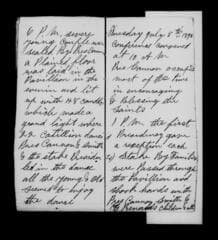 6 P.M. every
young couple was
a Plained floor
was laid in the
Pavillion in the
evenin and lit
up with 108 candles
which made a
grand light where
22 Catillion dances
Pres Cannon & Smith
& the stake Presidn
led in the dance
all the young & old
seemed to enjoy
the dance
Thursday July 8th
Conference convened
at 10 A.M.
Pres Cannon occupied
most of the time
in encouraging
& blessing the
Saints
1 P.M. the first
Presidency gave
a reception each
of Stake & Families
were passed through
the Pavillion and
shook hands with
Pres Cannon Smith &